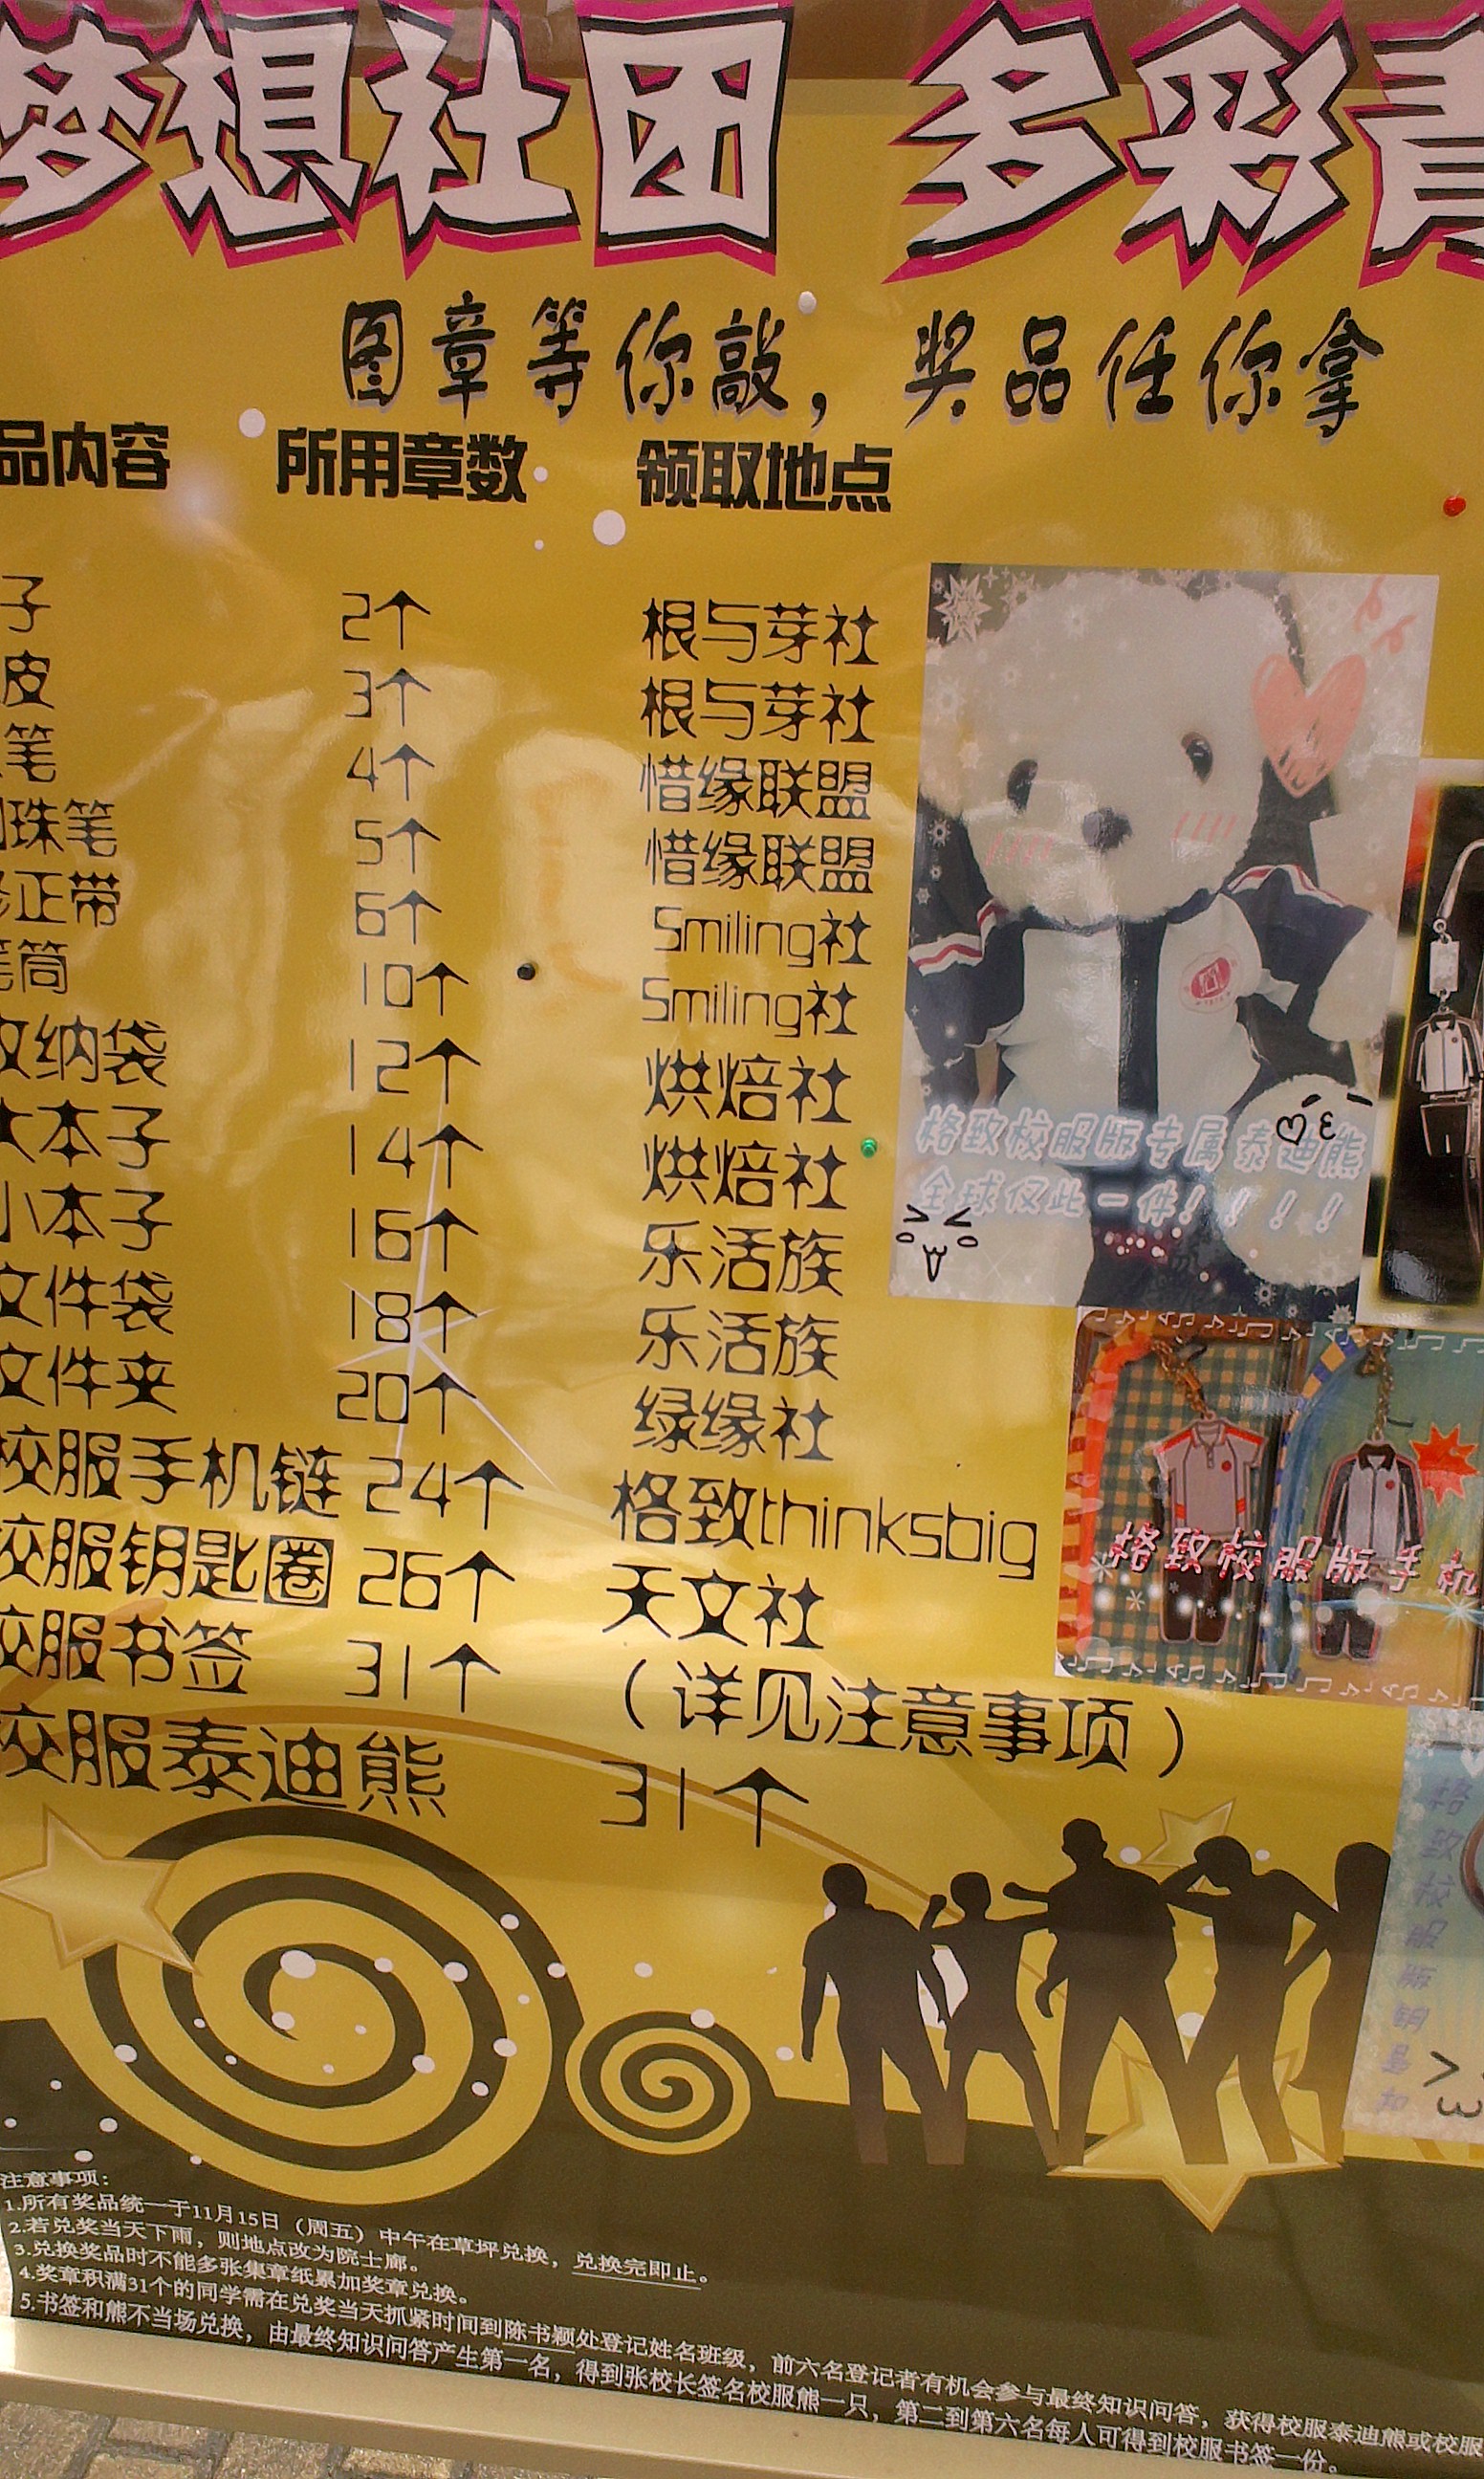 梦想社团 多彩青
图章等你敲，奖品任你拿
品内容 所用章数 领取地点
子 2个 根与芽社
皮 3个 根与芽社
笔 4个 惜缘联盟
珠笔 5个 惜缘联盟
修正带 6个 Smiling社
笔筒 10个 Smiling社
收纳袋 12个 烘焙社
大本子 14个 烘焙社
小本子 16个 乐活族
文件袋 18个 乐活族
文件夹 20个 绿缘社
校服手机链 24个 格致thinksbig
校服钥匙圈 26个 天文社
校服书签 31个 （详见注意事项）
校服泰迪熊 31个
格致校服版专属泰迪熊
全球仅此一件！！！！
格致校服版手机
格致校服版钥匙扣
注意事项：
1.所有奖品统一于11月15日（周五）中午在草坪兑换，兑换完即止。
2.若兑奖当天下雨，则地点改为院士廊。
3.兑换奖品时不能多张集章纸累加奖章兑换。
4.奖章积满31个的同学需在兑奖当天抓紧时间到陈书颖处登记姓名班级，前六名登记者有机会参与最终知识问答，获得校服泰迪熊或校服
5.书签和熊不当场兑换，由最终知识问答产生第一名，得到张校长签名校服熊一只，第二到第六名每人可得到校服书签一份。